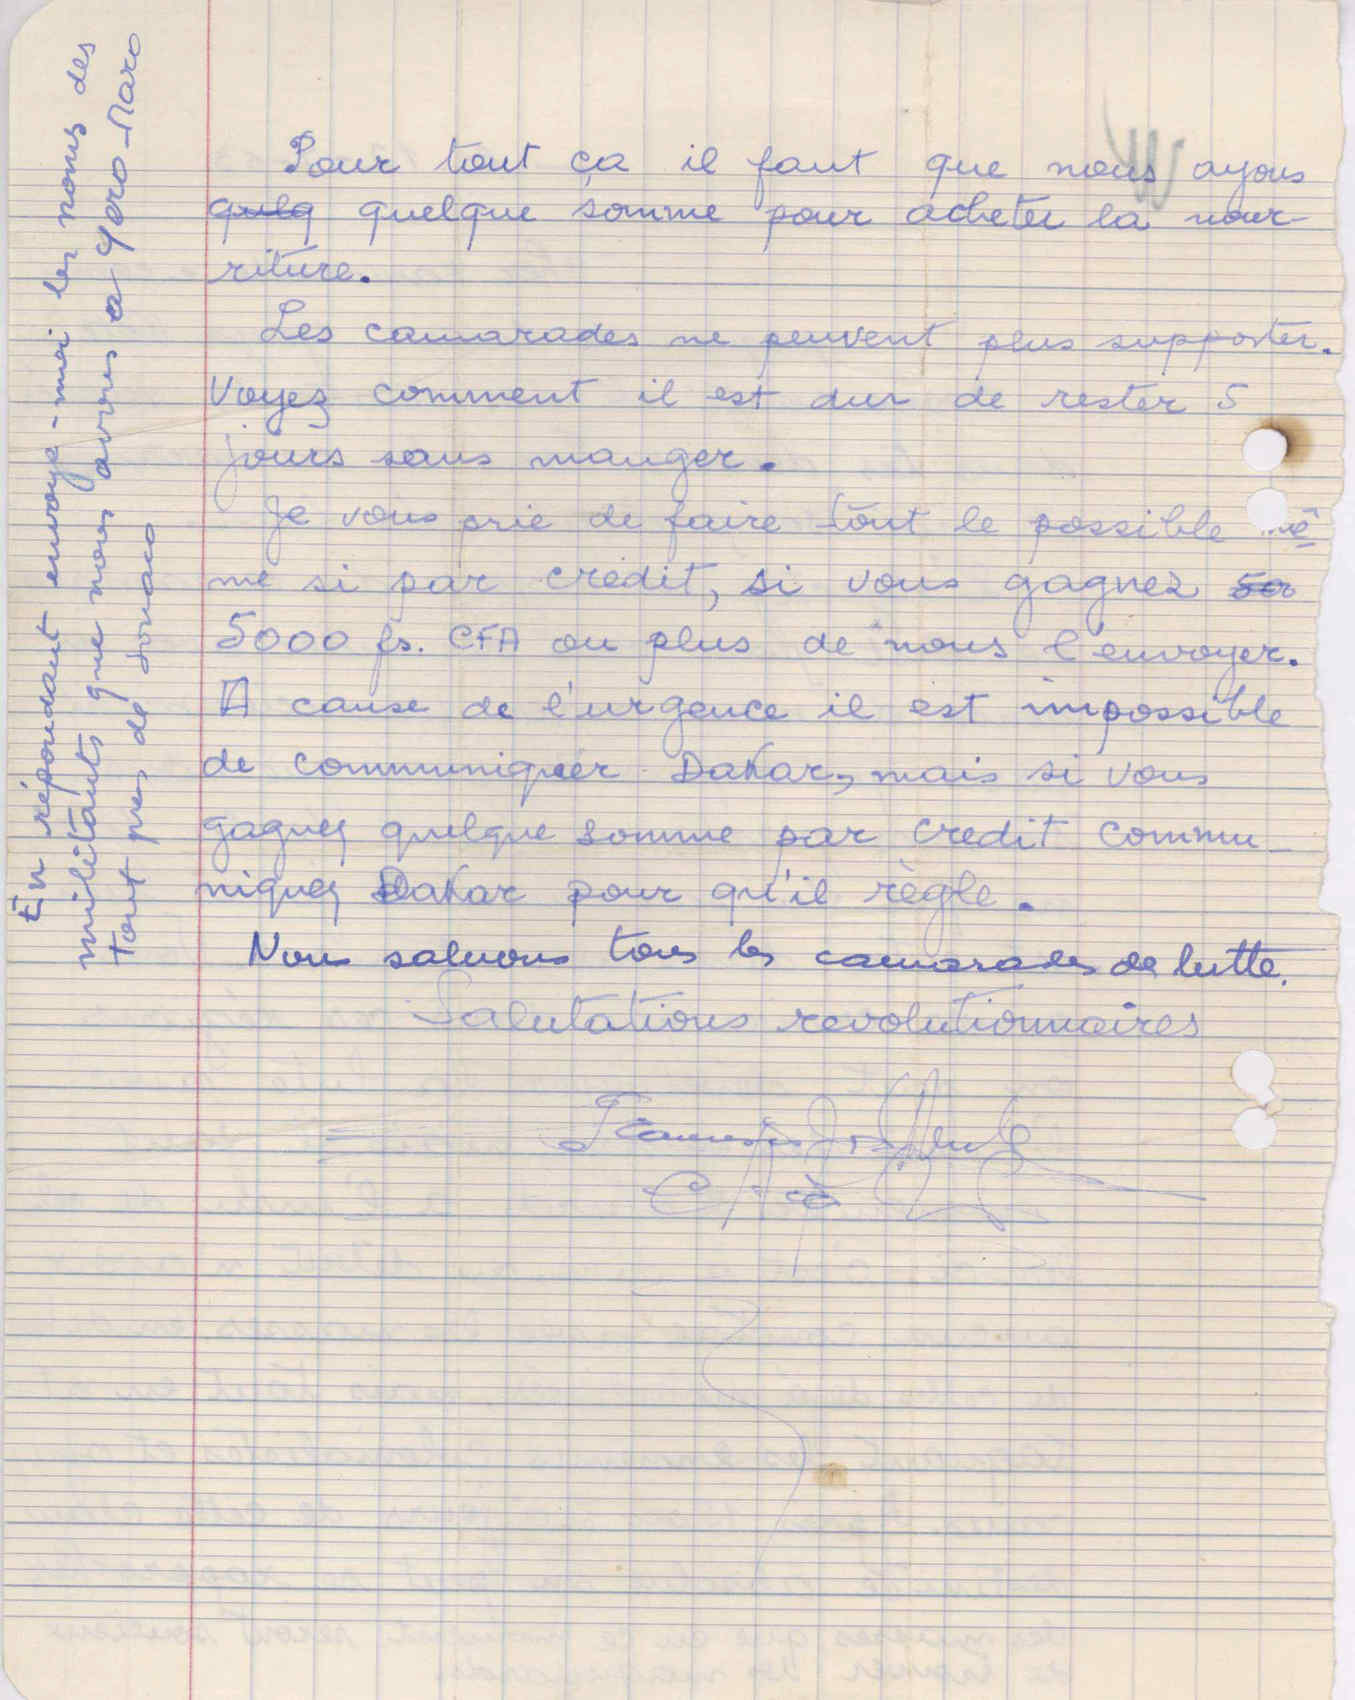 Pour tout ça il faut que nous ayons
quelq quelque somme pour acheter la nour-
riture.
Les camarades ne peuvent plus supporter.
Voyez comment il est dur de rester 5
jours sans manger.
Je vous prie de faire tout le possible mê
me si par crédit, si vous gagnez 500
5000 fs. CFA ou plus de nous l'envoyer.
A cause de l'urgence il est impossible
de communiquer Dakar, mais si vous
gagnez quelque somme par credit commu-
niquez Dakar pour qu'il règle.
Nous saluons tous les camarades de lutte.
Salutations revolutionnaires
En répondant envoye-moi les noms des
militants que nous avons a Yero-Maro
tout pres de